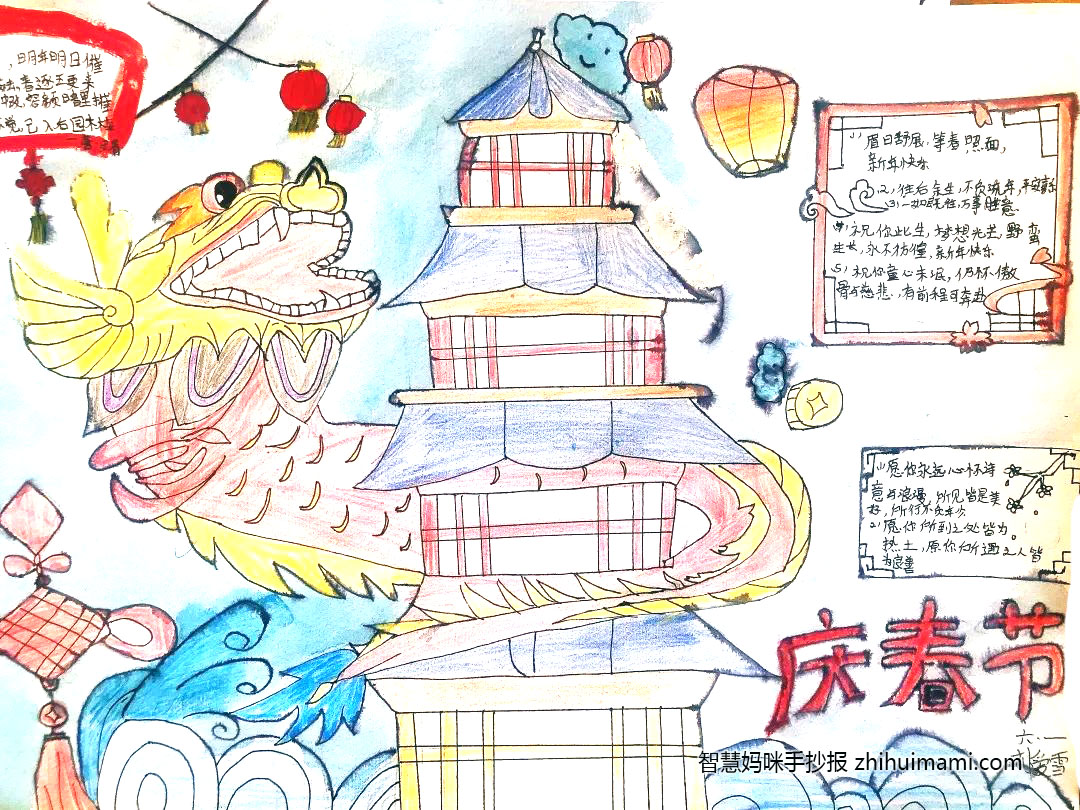 明年明日催
眉目舒展,等春照面,
新年快乐
2)往后余生,不负流年,
3)一如既往,万事胜意
祝你此生,梦想光芒,野蛮
生长,永不彷徨,新年快乐
5)祝你童心未泯,仍怀傲
骨与慈悲,有前程可奔赴
1)愿你永远心怀诗
意与浪漫,所见皆是美
好,所行不负年少
2)愿你所到之处皆为
热土,愿你所遇之人皆
为良善
庆春节
六·一
雪
智慧妈咪手抄报 zhihuimami.com